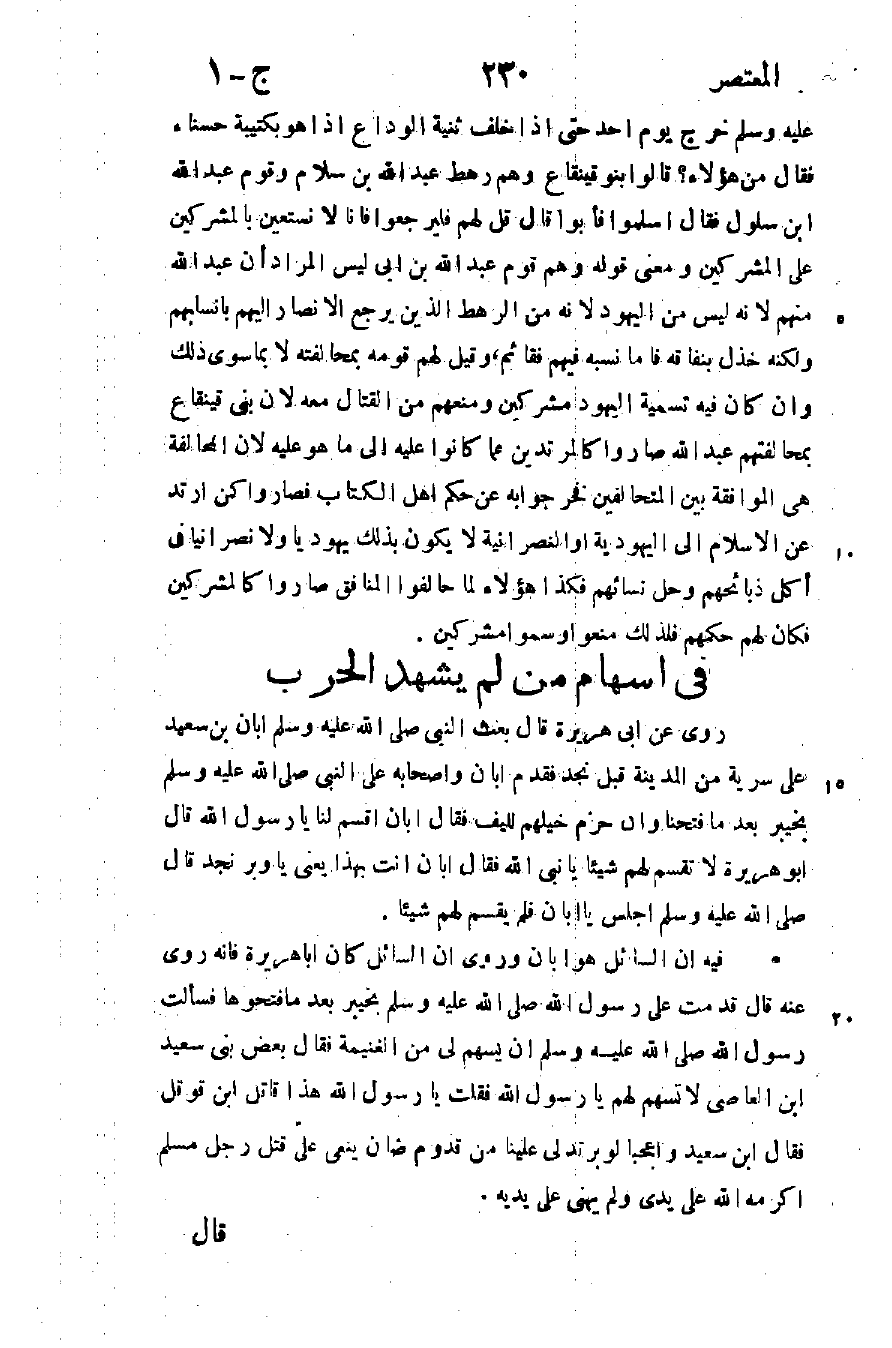 المعتصر ٢٣٠ ج-١
عليه وسلم خرج يوم احد حتى اذا خلف ثنية الوداع اذا هو بكتيبة حسناء
فقال من هؤلاء؟ قالوا بنو قينقاع وهم رهط عبد الله بن سلام وقوم عبد الله
ابن سلول فقال اسلموا فأبوا قال قل لهم فليرجعوا فانا لا نستعين بالمشركين
على المشركين ومعنى قوله وهم قوم عبد الله بن ابى ليس المراد أن عبد الله
منهم لانه ليس من اليهود لانه من الرهط الذين يرجع الانصار اليهم بانسابهم ٥
ولكنه خذل بنفاقه فاما نسبه فيهم فقائم، وقيل لهم قومه بمحالفته لا بما سوى ذلك
وان كان فيه تسمية اليهود مشركين ومنعهم من القتال معه لان بنى قينقاع
بمحالفتهم عبد الله صاروا كالمرتدين عما كانوا عليه الى ما هو عليه لان المحالفة
هى الموافقة بين المتحالفين فخر جوابه عن حكم اهل الكتاب فصاروا كمن ارتد
عن الاسلام الى اليهودية او النصرانية لا يكون بذلك يهوديا ولا نصرانيا فى ١٠
أكل ذبائحهم وحل نسائهم فكذا هؤلاء لما حالفوا المنافق صاروا كالمشركين
فكان لهم حكمهم فلذلك منعوا وسموا مشركين .
فى اسهام من لم يشهد الحرب
روى عن ابى هريرة قال بعث النبى صلى الله عليه وسلم ابان بن سعيد
على سرية من المدينة قبل نجد فقدم ابان واصحابه على النبى صلى الله عليه وسلم ١٥
بخيبر بعد ما فتحنا وان حزم خيلهم لليف فقال ابان اقسم لنا يا رسول الله قال
ابو هريرة لا تقسم لهم شيئا يا نبى الله فقال ابان انت بهذا يعنى يا وبر نجد قال
صلى الله عليه وسلم اجلس يا ابان فلم يقسم لهم شيئا .
• فيه ان السائل هو ابان وروى ان السائل كان اباهريرة فانه روى
عنه قال قدمت على رسول الله صلى الله عليه وسلم بخيبر بعد مافتحوها فسألت ٢٠
رسول الله صلى الله عليه وسلم ان يسهم لى من الغنيمة فقال بعض بنى سعيد
ابن العاصى لا تسهم لهم يا رسول الله فقلت يا رسول الله هذا قاتل ابن قوقل
فقال ابن سعيد واعجبا لوبر تدلى علينا من قدوم ضان ينعى علىّ قتل رجل مسلم
اكرمه الله على يدى ولم يهنى على يديه .
قال